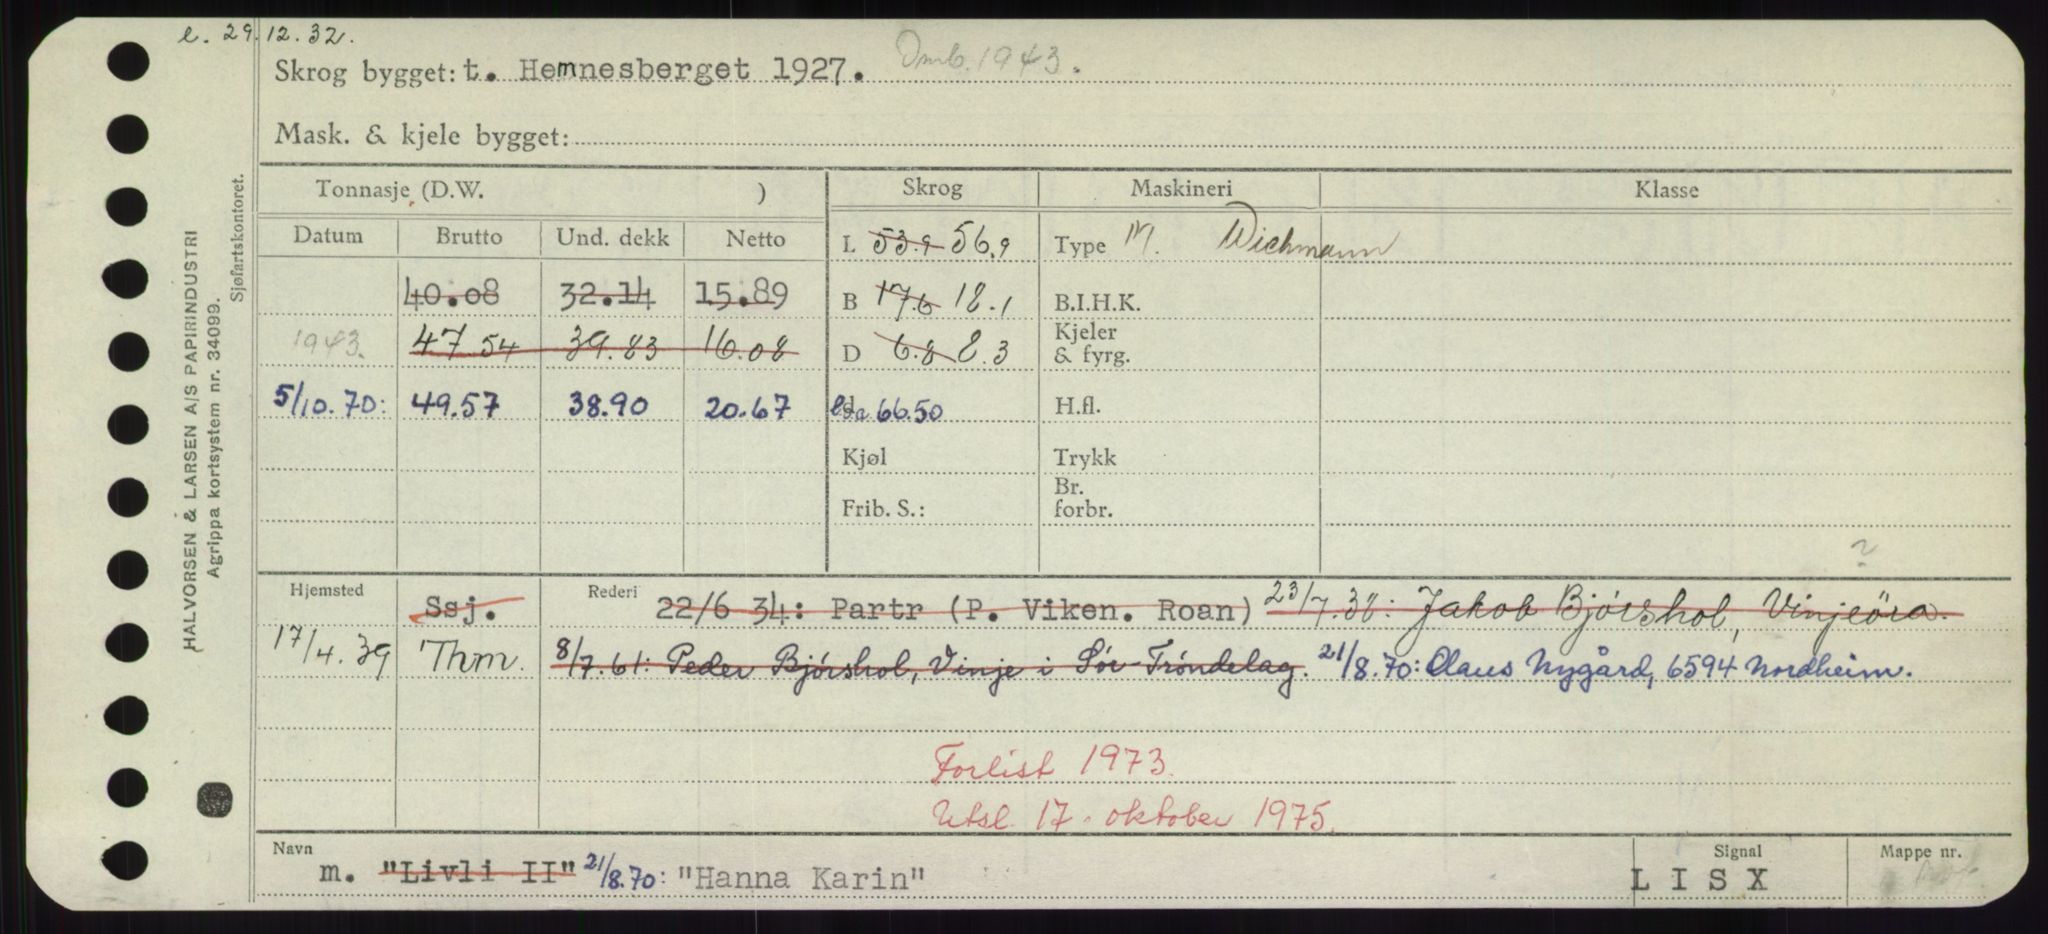 e. 29.12.32.
Skrog bygget: t. Hemnesberget 1927. Omb. 1943.
Mask. & kjele bygget:
HALVORSEN & LARSEN A/S PAPIRINDUSTRI
Agrippa kortsystem nr. 34099.
Sjøfartskontoret.
Tonnasje (D.W. ) Skrog Maskineri Klasse
Datum Brutto Und. dekk Netto L 53.9 56.9 Type M. Wichmann
40.08 32.14 15.89 B 17.6 18.1 B.I.H.K.
1943. 47.54 39.83 16.08 D 6.8 8.3 Kjeler & fyrg.
5/10.70: 49.57 38.90 20.67 66.50 H.fl.
Kjøl Trykk
Frib. S.: Br. forbr.
?
Hjemsted Ssj. Rederi 22/6 34: Partr (P. Viken. Roan) 23/7.38: Jakob Bjórshol, Vinjeöra.
17/4.39 Thm. 8/7.61: Peder Bjórshol, Vinje i Sór-Tróndelag. 21/8.70: Claus Nygård, 6594 Nordheim.
Forlist 1973.
Utsl. 17. oktober 1975.
Navn m. "Livli II" 21/8.70: "Hanna Karin" Signal LISX Mappe nr.